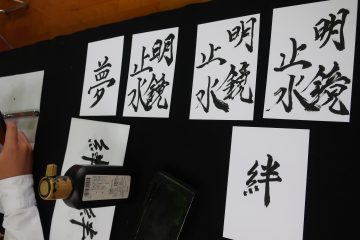 夢
明鏡
止水
明鏡
止水
明鏡
止水
絆